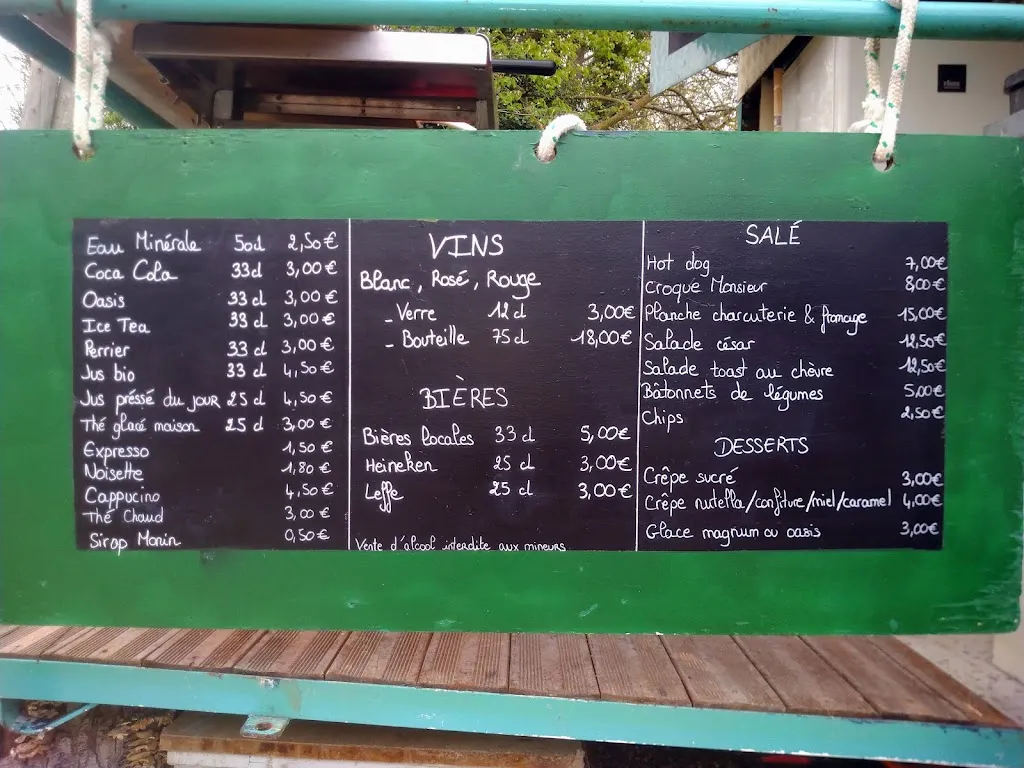 Eau Minérale 50cl 2,50€
Coca Cola 33cl 3,00€
Oasis 33 cl 3,00€
Ice Tea 33 cl 3,00€
Perrier 33 cl 3,00€
Jus bio 33 cl 4,50€
Jus préssé du jour 25 cl 4,50€
Thé glacé maison 25 cl 3,00€
Expresso 1,50€
Noisette 1,80€
Cappucino 4,50€
Thé Chaud 3,00€
Sirop Monin 0,50€
VINS
Blanc, Rosé, Rouge
- Verre 12 cl 3,00€
- Bouteille 75 cl 18,00€
BIÈRES
Bières locales 33 cl 5,00€
Heineken 25 cl 3,00€
Leffe 25 cl 3,00€
Vente d'alcool interdite aux mineurs
SALÉ
Hot dog 7,00€
Croque Monsieur 8,00€
Planche charcuterie & fromage 15,00€
Salade césar 12,50€
Salade toast au chèvre 12,50€
Bâtonnets de légumes 5,00€
Chips 2,50€
DESSERTS
Crêpe sucré 3,00€
Crêpe nutella/confiture/miel/caramel 4,00€
Glace magnum ou oasis 3,00€